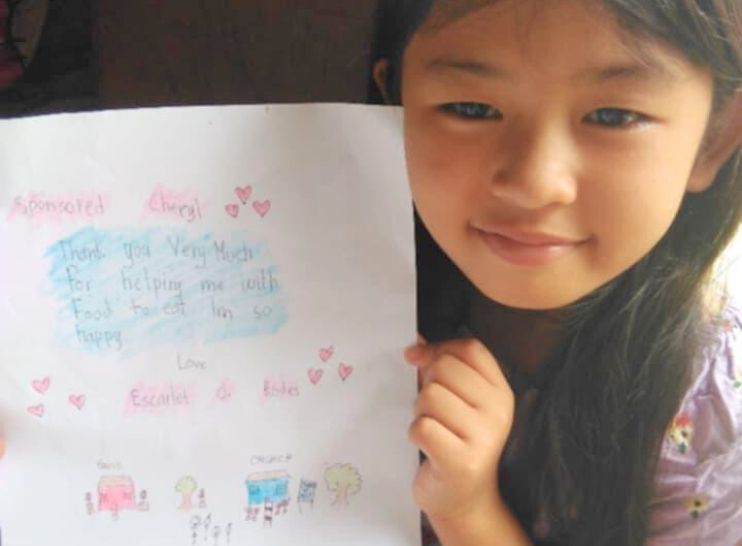 Sponsored Cheryl
Thank you Very Much
For helping me with
Food to eat Im so
happy
Love
Escarlet O.
CHURCH